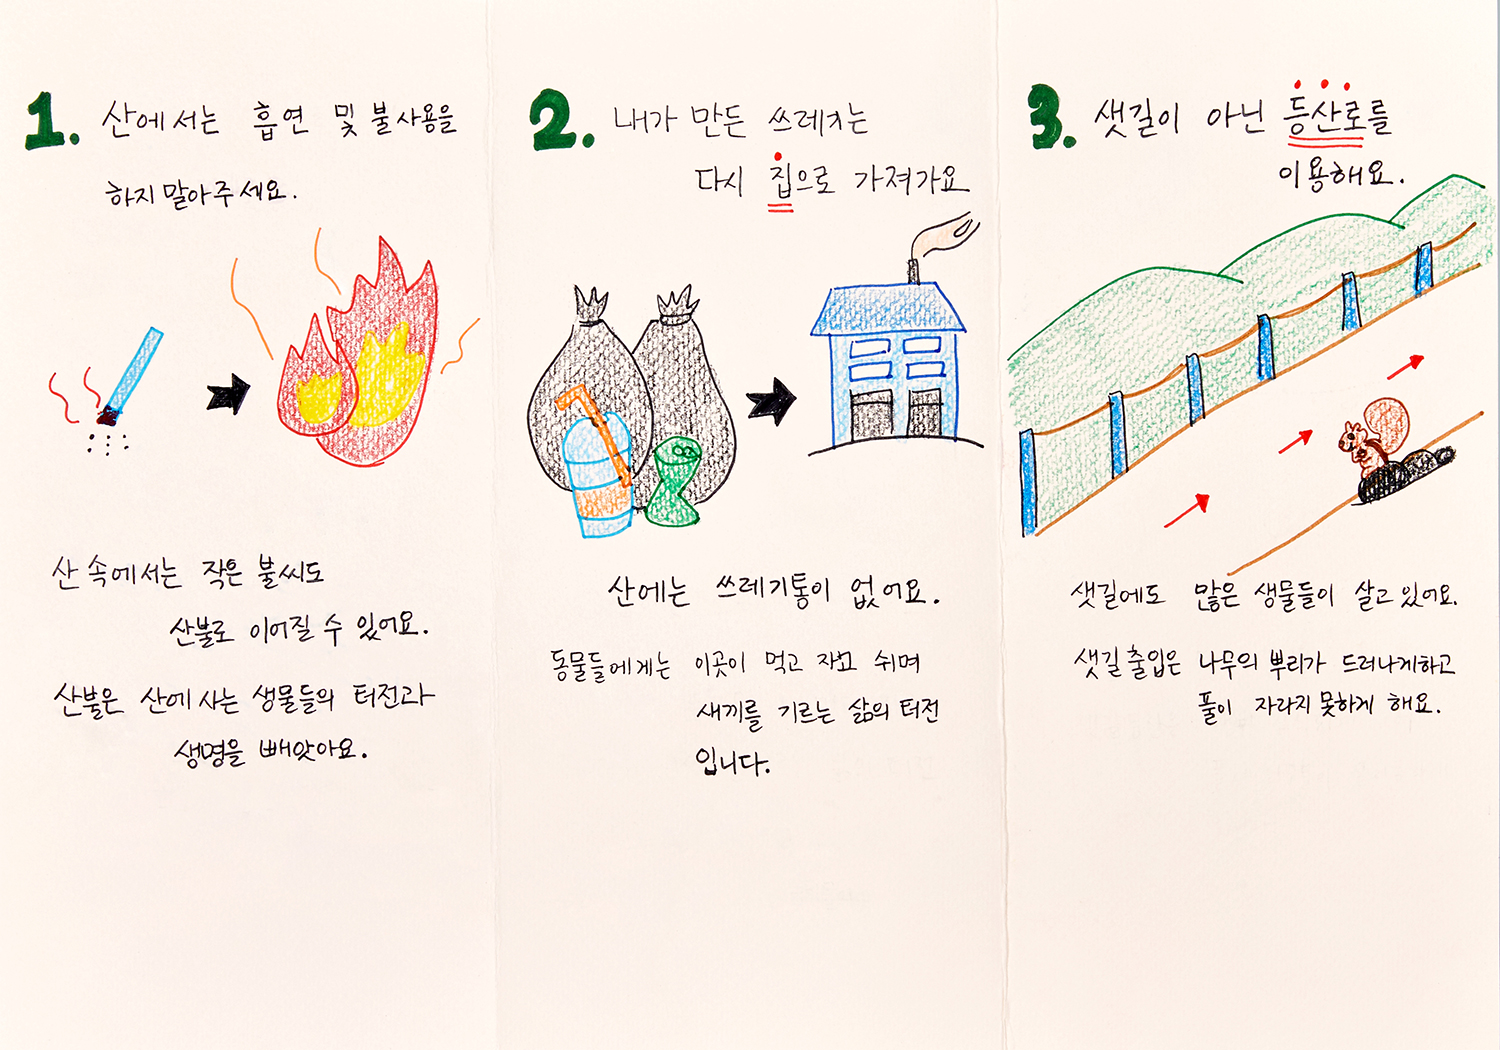 1. 산에서는 흡연 및 불사용을
하지 말아주세요.
산 속에서는 작은 불씨도
산불로 이어질 수 있어요.
산불은 산에 사는 생물들의 터전과
생명을 빼앗아요.
2. 내가 만든 쓰레기는
다시 집으로 가져가요
산에는 쓰레기통이 없어요.
동물들에게는 이곳이 먹고 자고 쉬며
새끼를 기르는 삶의 터전
입니다.
3. 샛길이 아닌 등산로를
이용해요.
샛길에도 많은 생물들이 살고 있어요.
샛길 출입은 나무의 뿌리가 드러나게하고
풀이 자라지 못하게 해요.